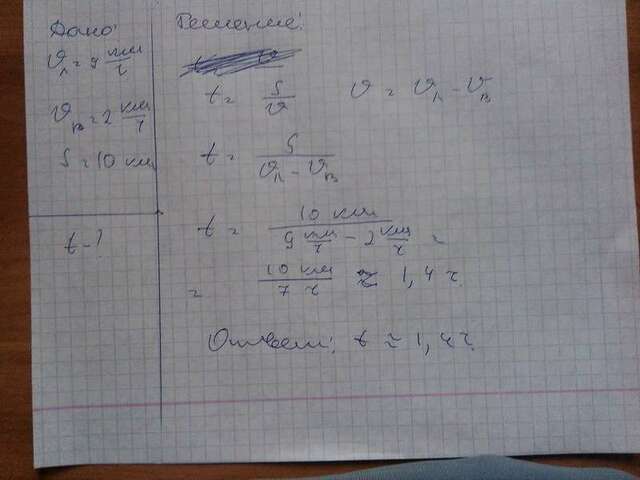 Дано:
υл = 9 км/ч
υв = 2 км/ч
S = 10 км
t - ?
Решение:
t = S/υ υ = υл - υв
t = S/(υл - υв)
t = 10 км/(9 км/ч - 2 км/ч) =
= 10 км/7 ч ≈ 1,4 ч.
Ответ: t ≈ 1,4 ч.